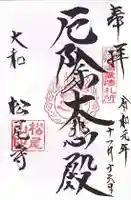 奉拝
令和元年
十一月十六日
厄除大悲殿
大和
松尾寺